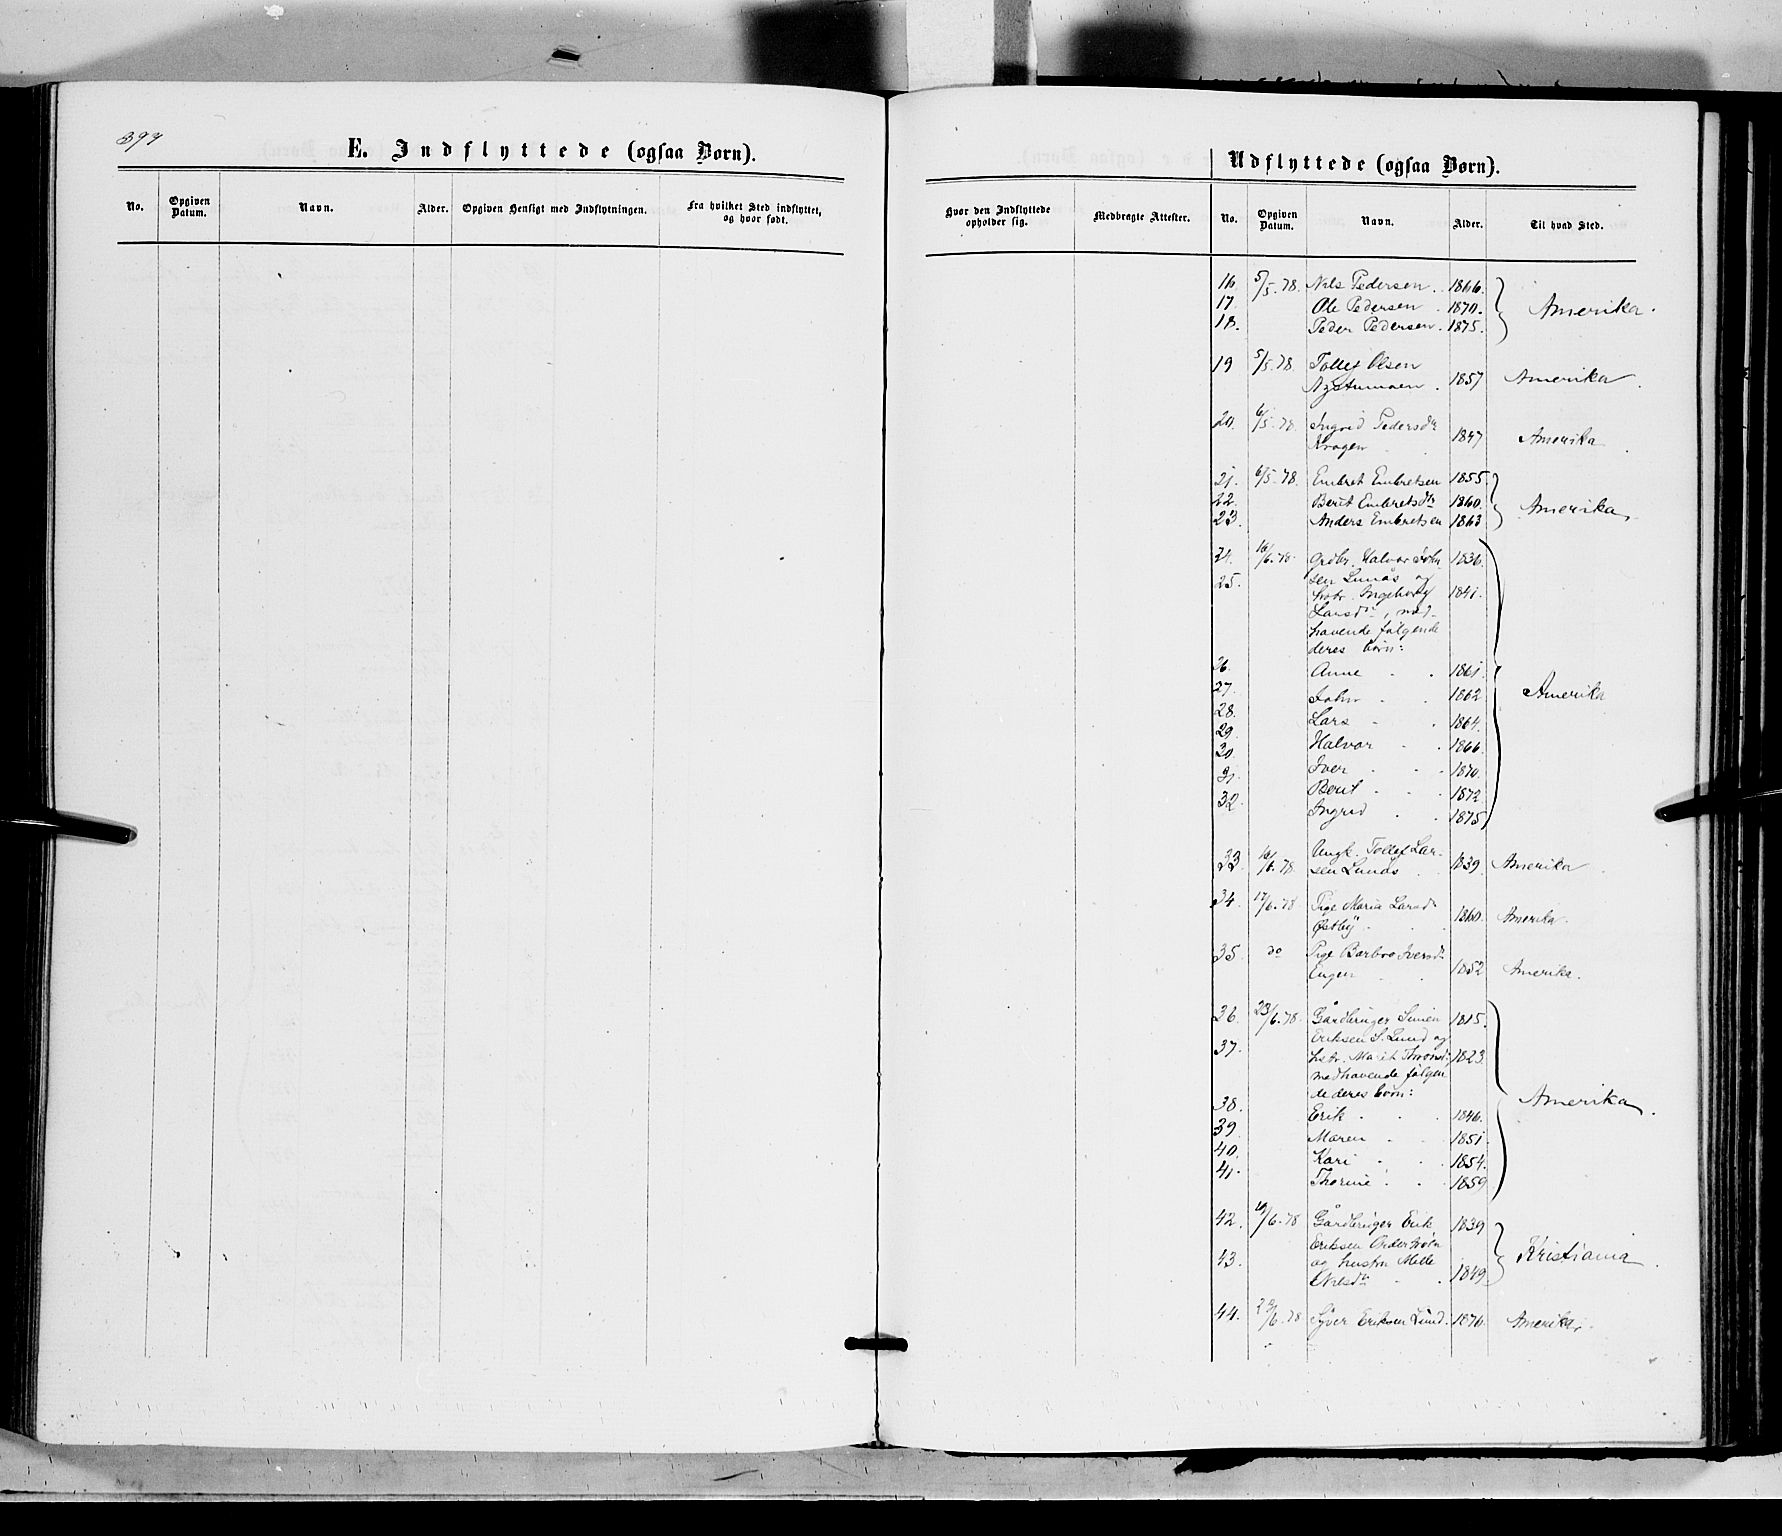 E. Indflyttede (ogsaa Børn).
No. Opgiven Datum. Navn. Alder. Opgiven Hensigt med Indflytningen. Fra hvilket Sted indflyttet, og hvor født.
Udflyttede (ogsaa Børn).
Hvor den Indflyttede opholder sig. Medbragte Attester. No. Opgiven Datum. Navn. Alder. Til hvad Sted.
16 5/5.78. Nils Pedersen . 1866.
17. Ole Pedersen . 1870. Amerika.
18. Peder Pedersen . 1875.
19 5/5.78 Tollef Olsen
Nystumoen . 1857 Amerika.
20. 6/5.78. Ingrid Pedersdtr
Kragen 1847 Amerika
21. 6/5.78. Embret Embretsen 1855
22. Berit Embretsdtr 1860. Amerika.
23. Anders Embretsen 1863
24. 16/6.78. Grdbr. Halvor John- 1836.
25. sen Lunås og
hstr. Ingeborg 1841.
Larsdtr, med-
havende følgende
deres børn:
26. Anne . . 1861.
27. John . . 1862 Amerika
28. Lars . . 1864.
29. Halvor . . 1866.
30. Iver . . 1870.
31. Berit . . 1872.
32. Ingrid . . 1875
33 16/6.78 Ungk. Tollef Lar-
sen Lunås . 1839. Amerika
34. 17/6.78 Pige Maria Larsd.
Østby . . 1860. Amerika.
35. do Pige Barbro Iversdr
Engen . . 1852 Amerika.
36. 23/6.78. Gårdbruger Simen 1815.
Eriksen S. Lund og
37. hstr. Marit Thronsd. 1823.
medhavende følgen
de deres børn: Amerika.
38. Erik . . . 1846.
39. Maren . . 1851.
40. Kari . . 1854.
41. Thorine . . 1859
42. 19/6.78 Gårdbruger Erik 1839
Eriksen
43. og hustru Kristiania.
Nilsdtr . 1849
44. Syver Eriksen Lund. 1876. Amerika.